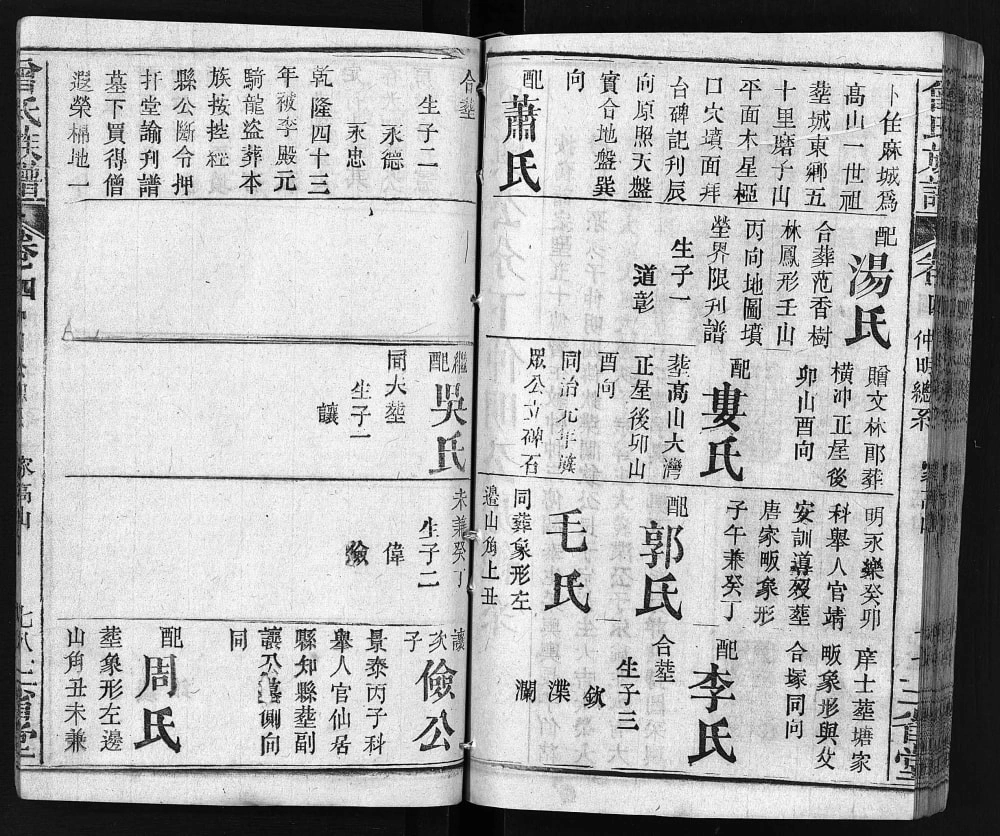 卜住麻城爲
高山一世祖
塟城東鄉五
十里磨子山
平面木星極
口穴墳面拜
台碑記刋辰
向原照天盤
實合地盤巽
向
配
蕭氏
合塟
生子二
永德
永忠
乾隆四十三
年被李殿元
騎龍盗葬本
族按控經
縣公斷令押
扦堂諭刋譜
墓下買得僧
遐榮棉地一
配
湯氏
合葬范香樹
林鳳形壬山
丙向地圖墳
塋界限刋譜
生子一
道彰
贈文林郎葬
橫冲正屋後
卯山酉向
配
婁氏
塟高山大灣
正屋後卯山
酉向
同治元年
眾公立碑石
繼
配
吳氏
同大塟
生子一
讓
明永樂癸卯
科舉人官靖
安訓導歿塟
唐家畈象形
子午兼癸丁
配
郭氏
合塟
毛氏
同葬象形左
邉山角上丑
未兼癸丁
生子二
偉
儉
庠士塟塘家
畈象形與父
合塚同向
配
李氏
生子三
欽
澲
瀾
讓
次
子
儉公
景泰丙子科
舉人官仙居
縣知縣塟副
讓公墓側向
同
配
周氏
塟象形左邊
山角丑未兼
曾氏族譜
卷四
仲明總系
三省堂
曾氏族譜
卷四
家高山
七八
三省堂